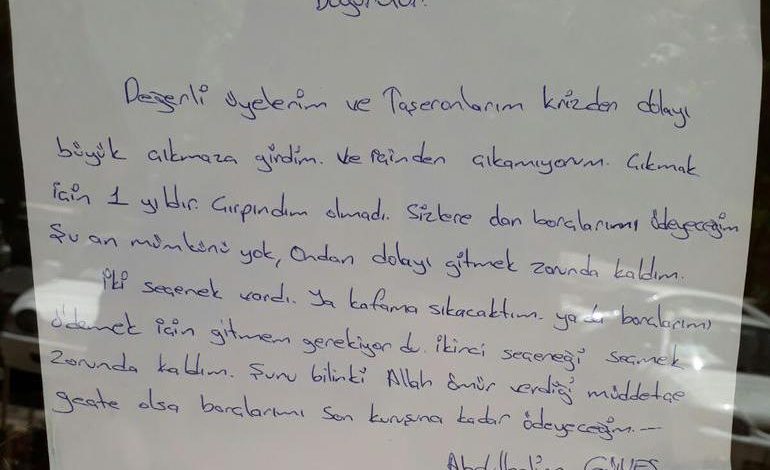 Duyurulur.
Değerli üyelerim ve Taşeronlarım krizden dolayı
büyük çıkmaza girdim. Ve içinden çıkamıyorum. Çıkmak
için 1 yıldır. Çırpındım olmadı. Sizlere olan borçlarımı ödeyeceğim
Şu an mümkünü yok, Ondan dolayı gitmek zorunda kaldım.
İki seçenek vardı. Ya kafama sıkacaktım. ya da borçlarımı
Ödemek için gitmem gerekiyor du. ikinci seçeneği seçmek
zorunda kaldım. Şunu bilinki Allah ömür verdiği müddetçe
geçte olsa borçlarımı son kuruşuna kadar ödeyeceğim.—